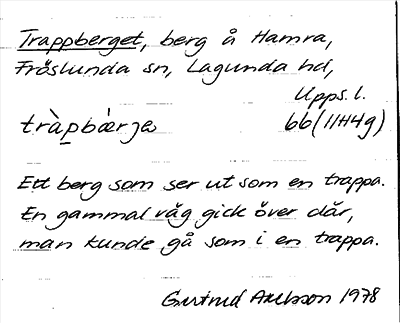 Trappberget, berg å Hamra,
Fröslunda sn, Lagunda hd,
Upps. l.
tràpbæ̀rjɐ 66(11H4g)
Ett berg som ser ut som en trappa.
En gammal väg gick över där,
man kunde gå som i en trappa.
Gertrud Axelsson 1978